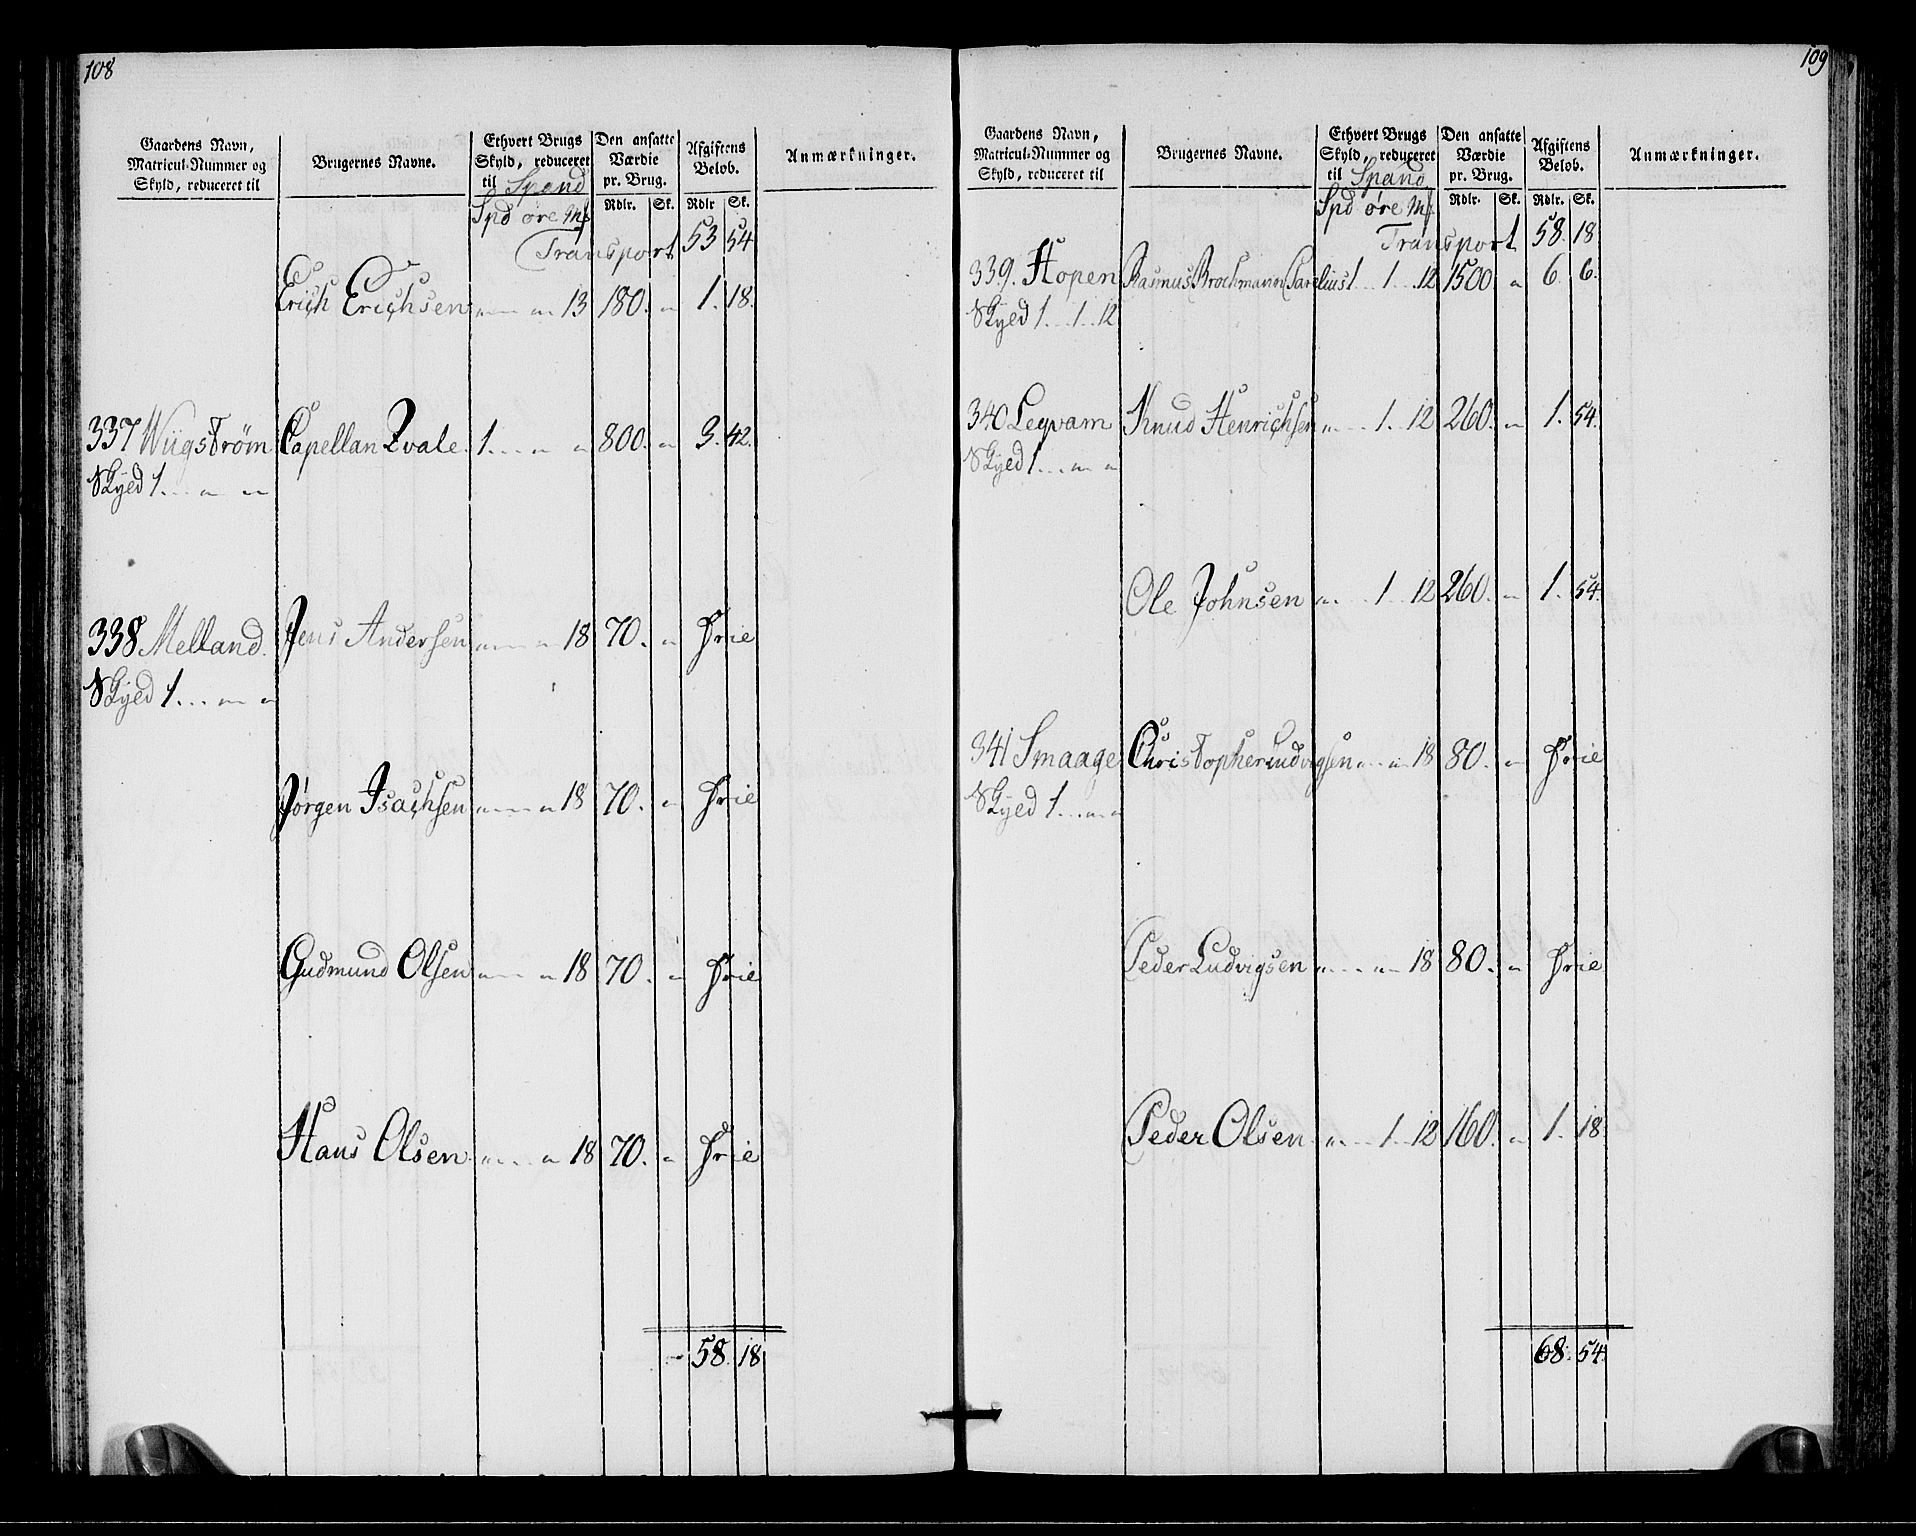 108
Gaardens Navn,
Matricul-Nummer og
Skyld, reduceret til
Brugernes Navne.
Ethvert Brugs
Skyld, reduceret
til Spand
Spd øre Mk
Den ansatte
Værdie
pr. Brug.
Rdlr. Sk.
Afgiftens
Beløb.
Rdlr Sk.
Anmærkninger.
Transport 53 54
Erich Erichsen " " 13 180. " 1. 18.
337 Wiigstrøm Capellan Qvale. 1 . . . " " 800. " 3. 42.
Skyld 1 . . . " "
338 Melland. Jens Andersen " " 18 70. " Frie
Skyld 1 . . . " "
Jørgen Isachsen " " 18 70. " Frie
Gudmund Olsen " " 18 70. " Frie
Hans Olsen. " " 18 70. " Frie
58. 18
109
Gaardens Navn,
Matricul-Nummer og
Skyld, reduceret til
Brugernes Navne.
Ethvert Brugs
Skyld, reduceret
til Spand
Spd øre Mk
Den ansatte
Værdie
pr. Brug.
Rdlr. Sk.
Afgiftens
Beløb.
Rdlr. Sk.
Anmærkninger.
Transport 58. 18
339. Hopen Rasmus Brochmann Parelius 1 . . 1 . . 12 1500 " 6. 6.
Skyld 1 . . 1 . . 12
340 Leqvam Knud Henrichsen " . . 1 . . 12 260. " 1. 54.
Skyld 1 . . . " "
Ole Johnsen " . . 1 . . 12 260. " 1. 54.
341 Smaage Christopher Ludvigsen " " 18 80. " Frie
Skyld 1 . . . " "
Peder Ludvigsen " " 18 80. " Frie
Peder Olsen " . . 1 . . 12 160. " 1. 18
68. 54.